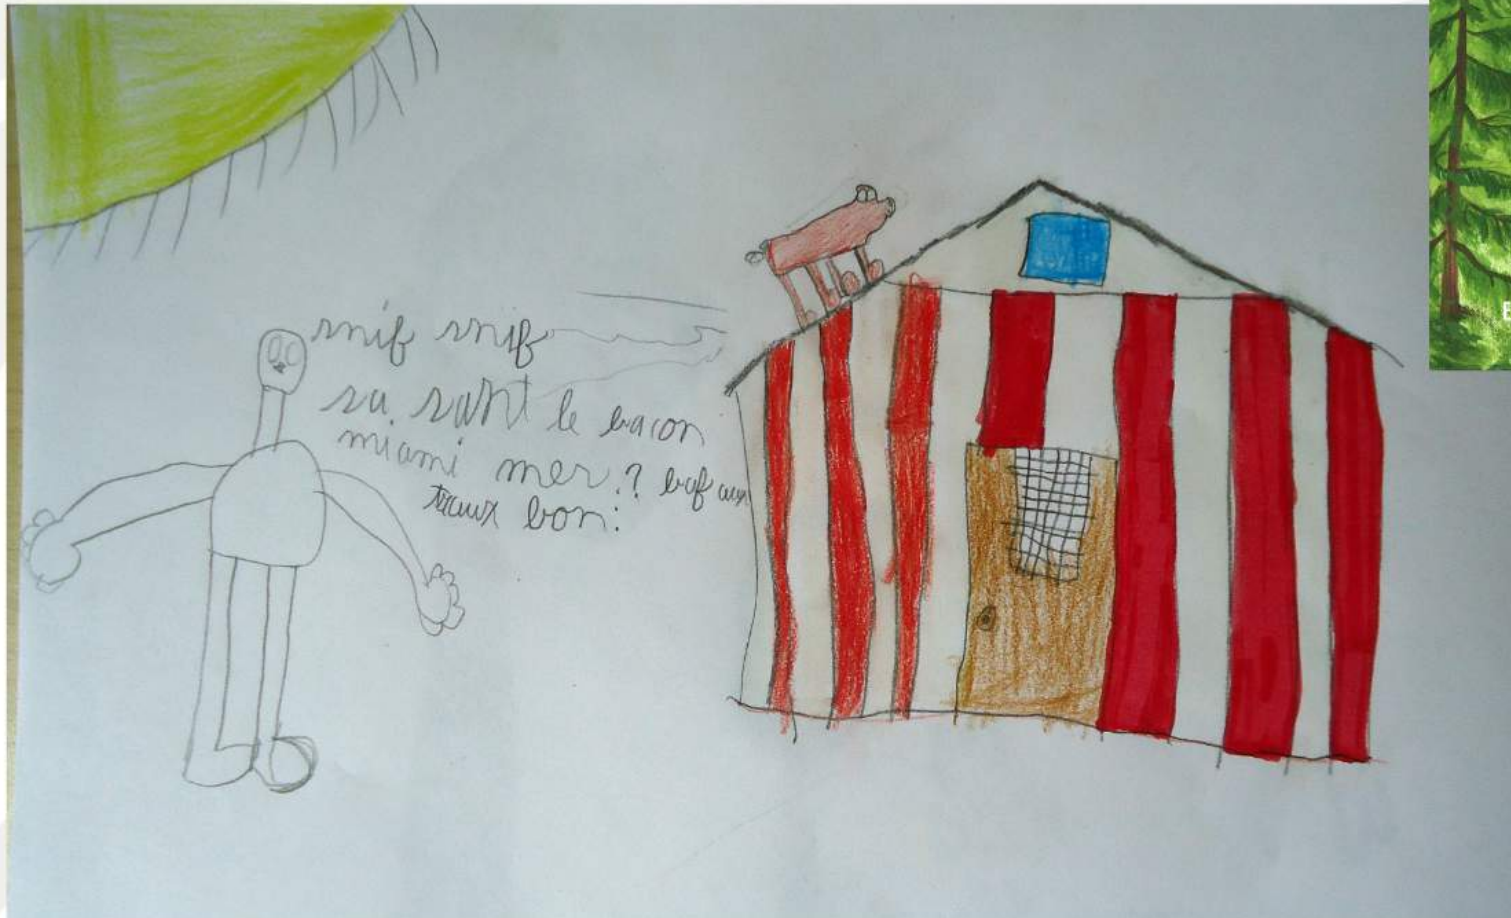 snif snif
sa sant le bacon
miami mer? buf aux
traux bon: